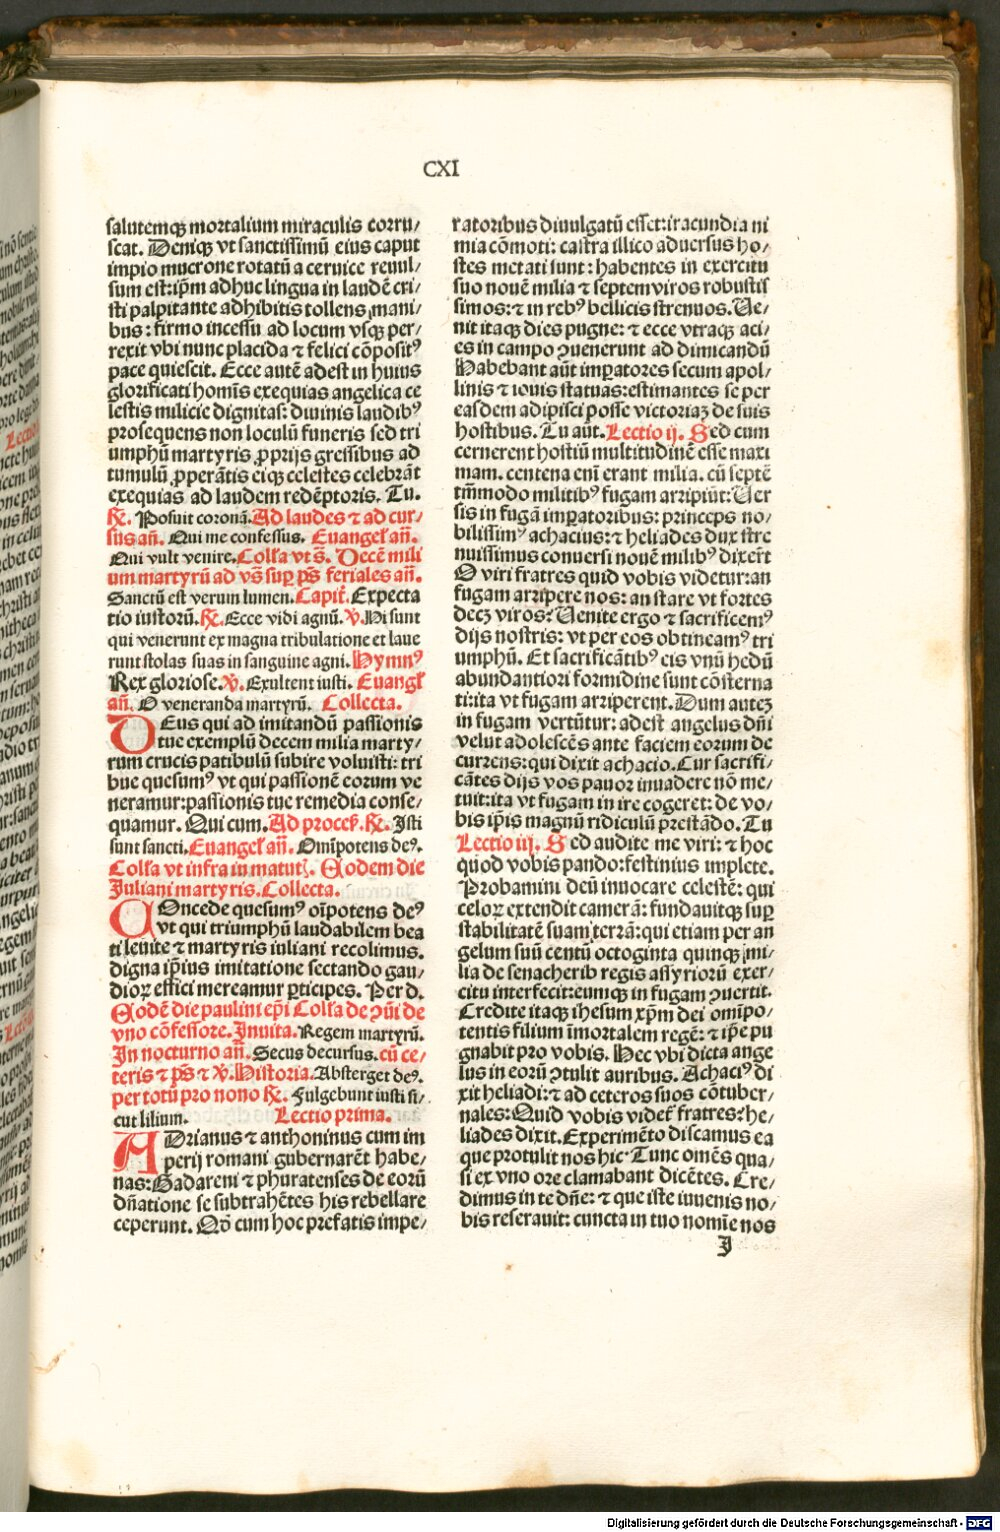 CXI
salutemqꝫ mortalium miraculis corru/
scat. Deniqꝫ vt sanctissimū eius caput
impio mucrone rotatū a ceruice reuul/
sum est:ip̄m adhuc lingua in laudē cri/
sti palpitante adhibitis tollens mani/
bus: firmo incessu ad locum vsqꝫ per/
rexit vbi nunc placida ⁊ felici cōposit⁹
pace quiescit. Ecce autē adest in huius
glorificati homīs exequias angelica ce
lestis milicie dignitas: diuinis laudib⁹
prosequens non loculū funeris sed tri
umphū martyris ꝓprijs gressibus ad
tumulū ꝓperātis eiqꝫ celestes celebrāt
exequias ad laudem redēptoris. Tu.
R̄. Posuit coronā. Ad laudes ⁊ ad cur/
sus añ. Qui me confessus. Euangeł añ.
Qui vult venire. Colłta vt s̄. Decē mili
um martyrū ad vs̄ suꝑ ps̄ feriales añ.
Sanctū est verum lumen. Capit̄. Expecta
tio iustorū. R̄. Ecce vidi agnū. v̄. Hi sunt
qui venerunt ex magna tribulatione et laue
runt stolas suas in sanguine agni. Hymn⁹
Rex gloriose. v̄. Exultent iusti. Euangł
añ. O veneranda martyrū. Collecta.
DEus qui ad imitandū passionis
tue exemplū decem milia marty/
rum crucis patibulū subire voluisti: tri
bue quesum⁹ vt qui passionē eorum ve
neramur:passionis tue remedia conse/
quamur. Qui cum. Ad process̄. R̄. Isti
sunt sancti. Euangeł añ. Om̄ipotens de⁹.
Colłta vt infra in matut̄. Eodem die
Juliani martyris. Collecta.
COncede quesum⁹ oīpotens de⁹
vt qui triumphū laudabilem bea
ti leuite ⁊ martyris iuliani recolimus.
digna ip̄ius imitatione sectando gau/
dioꝝ effici mereamur ꝑticipes. Per d.
Eodē die paulini ep̄i Colłta de ꝯūi de
vno cōfessore. Inuita. Regem martyrū.
In nocturno añ. Secus decursus. cū ce/
teris ⁊ ps̄ ⁊ v̄. Historia. Absterget de⁹.
per totū pro nono R̄. Fulgebunt iusti si/
cut lilium. Lectio prima.
ADrianus ⁊ anthoninus cum im
perij romani gubernarēt habe/
nas: Gadareni ⁊ phuratenses de eorū
dn̄atione se subtrahētes his rebellare
ceperunt. Qd̄ cum hoc prefatis impe/
ratoribus diuulgatū esset:iracundia ni
mia cōmoti: castra illico aduersus ho/
stes metati sunt: habentes in exercitu
suo nouē milia ⁊ septem viros robustis
simos: ⁊ in reb⁹ bellicis strenuos. Ue/
nit itaqꝫ dies pugne: ⁊ ecce vtraqꝫ aci/
es in campo ꝯuenerunt ad dimicandū
Habebant aūt imꝑatores secum apol/
linis ⁊ iouis statuas:estimantes se per
easdem adipisci posse victoriaꝫ de suis
hostibus. Tu aūt. Lectio ij. Sed cum
cernerent hostiū multitudinē esse maxi
mam. centena enī erant milia. cū septē
tm̄modo militib⁹ fugam arripiūt: Uer
sis in fugā imꝑatoribus: princeps no/
bilissim⁹ achacius: ⁊ heliades dux stre
nuissimus conuersi nouē milib⁹ dixerūt
O viri fratres quid vobis videtur:an
fugam arripere nos: an stare vt fortes
decꝫ viros? Uenite ergo ⁊ sacrificem⁹
dijs nostris: vt per eos obtineam⁹ tri
umphū. Et sacrificātib⁹ eis vnū hedū
abundantiori formidine sunt cōsterna
ti:ita vt fugam arriperent. Dum auteꝫ
in fugam vertūtur: adest angelus dn̄i
velut adolescēs ante faciem eorum de
currens: qui dixit achacio. Cur sacrifi/
cātes dijs vos pauor inuadere nō me/
tuit:ita vt fugam in ire cogeret: de vo/
bis ip̄is magnū ridiculū prestādo. Tu
Lectio iij. Sed audite me viri: ⁊ hoc
quod vobis pando: festinius implete.
Probamini deū inuocare celestē: qui
celoꝝ extendit camerā: fundauitqꝫ suꝑ
stabilitatē suam terrā: qui etiam per an
gelum suū centū octoginta quinqꝫ mi/
lia de senacherib regis assyriorū exer/
citu interfecit:eumqꝫ in fugam ꝯuertit.
Credite itaqꝫ ihesum xp̄m dei om̄ipo/
tentis filium īmortalem regē: ⁊ ip̄e pu
gnabit pro vobis. Hec vbi dicta ange
lus in eorū ꝯtulit auribus. Achaci⁹ di
xit heliadi: ⁊ ad ceteros suos cōtuber/
nales: Quid vobis videt̄ fratres? he/
liades dixit. Experimēto discamus ea
que protulit nos hic. Tunc omēs qua/
si ex vno ore clamabant dicētes. Cre/
dimus in te dn̄e: ⁊ que iste iuuenis no/
bis reserauit: cuncta in tuo nomīe nos
J
Digitalisierung gefördert durch die Deutsche Forschungsgemeinschaft - DFG